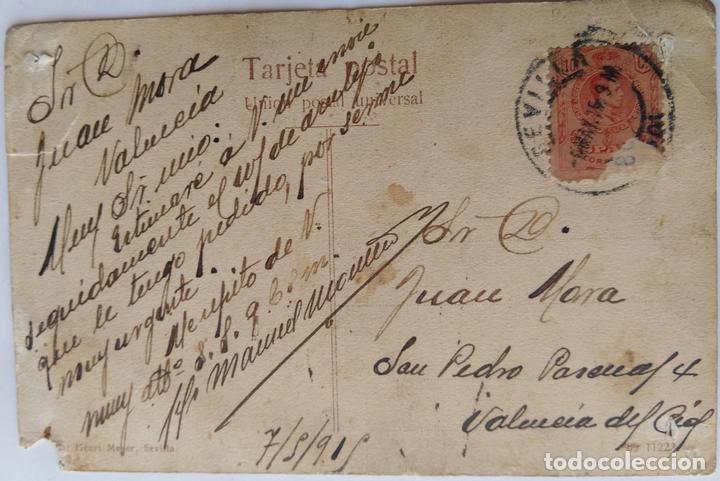 Tarjeta Postal
Unión postal universal
Sr D.
Juan Mora
Valencia
Muy Sr. mio:
Estimaré a V. me envie
seguidamente el de azulejo
que le tengo pedido, por serme
muy urgente.
Me repito de V.
muy atto. S. S. q. b. s. m.
Manuel
7/5/915
Sr D.
Juan Mora
San Pedro Pascual 4
Valencia del Cid
SEVILLA
Meyer, Sevilla
todocoleccion
todocoleccion.net